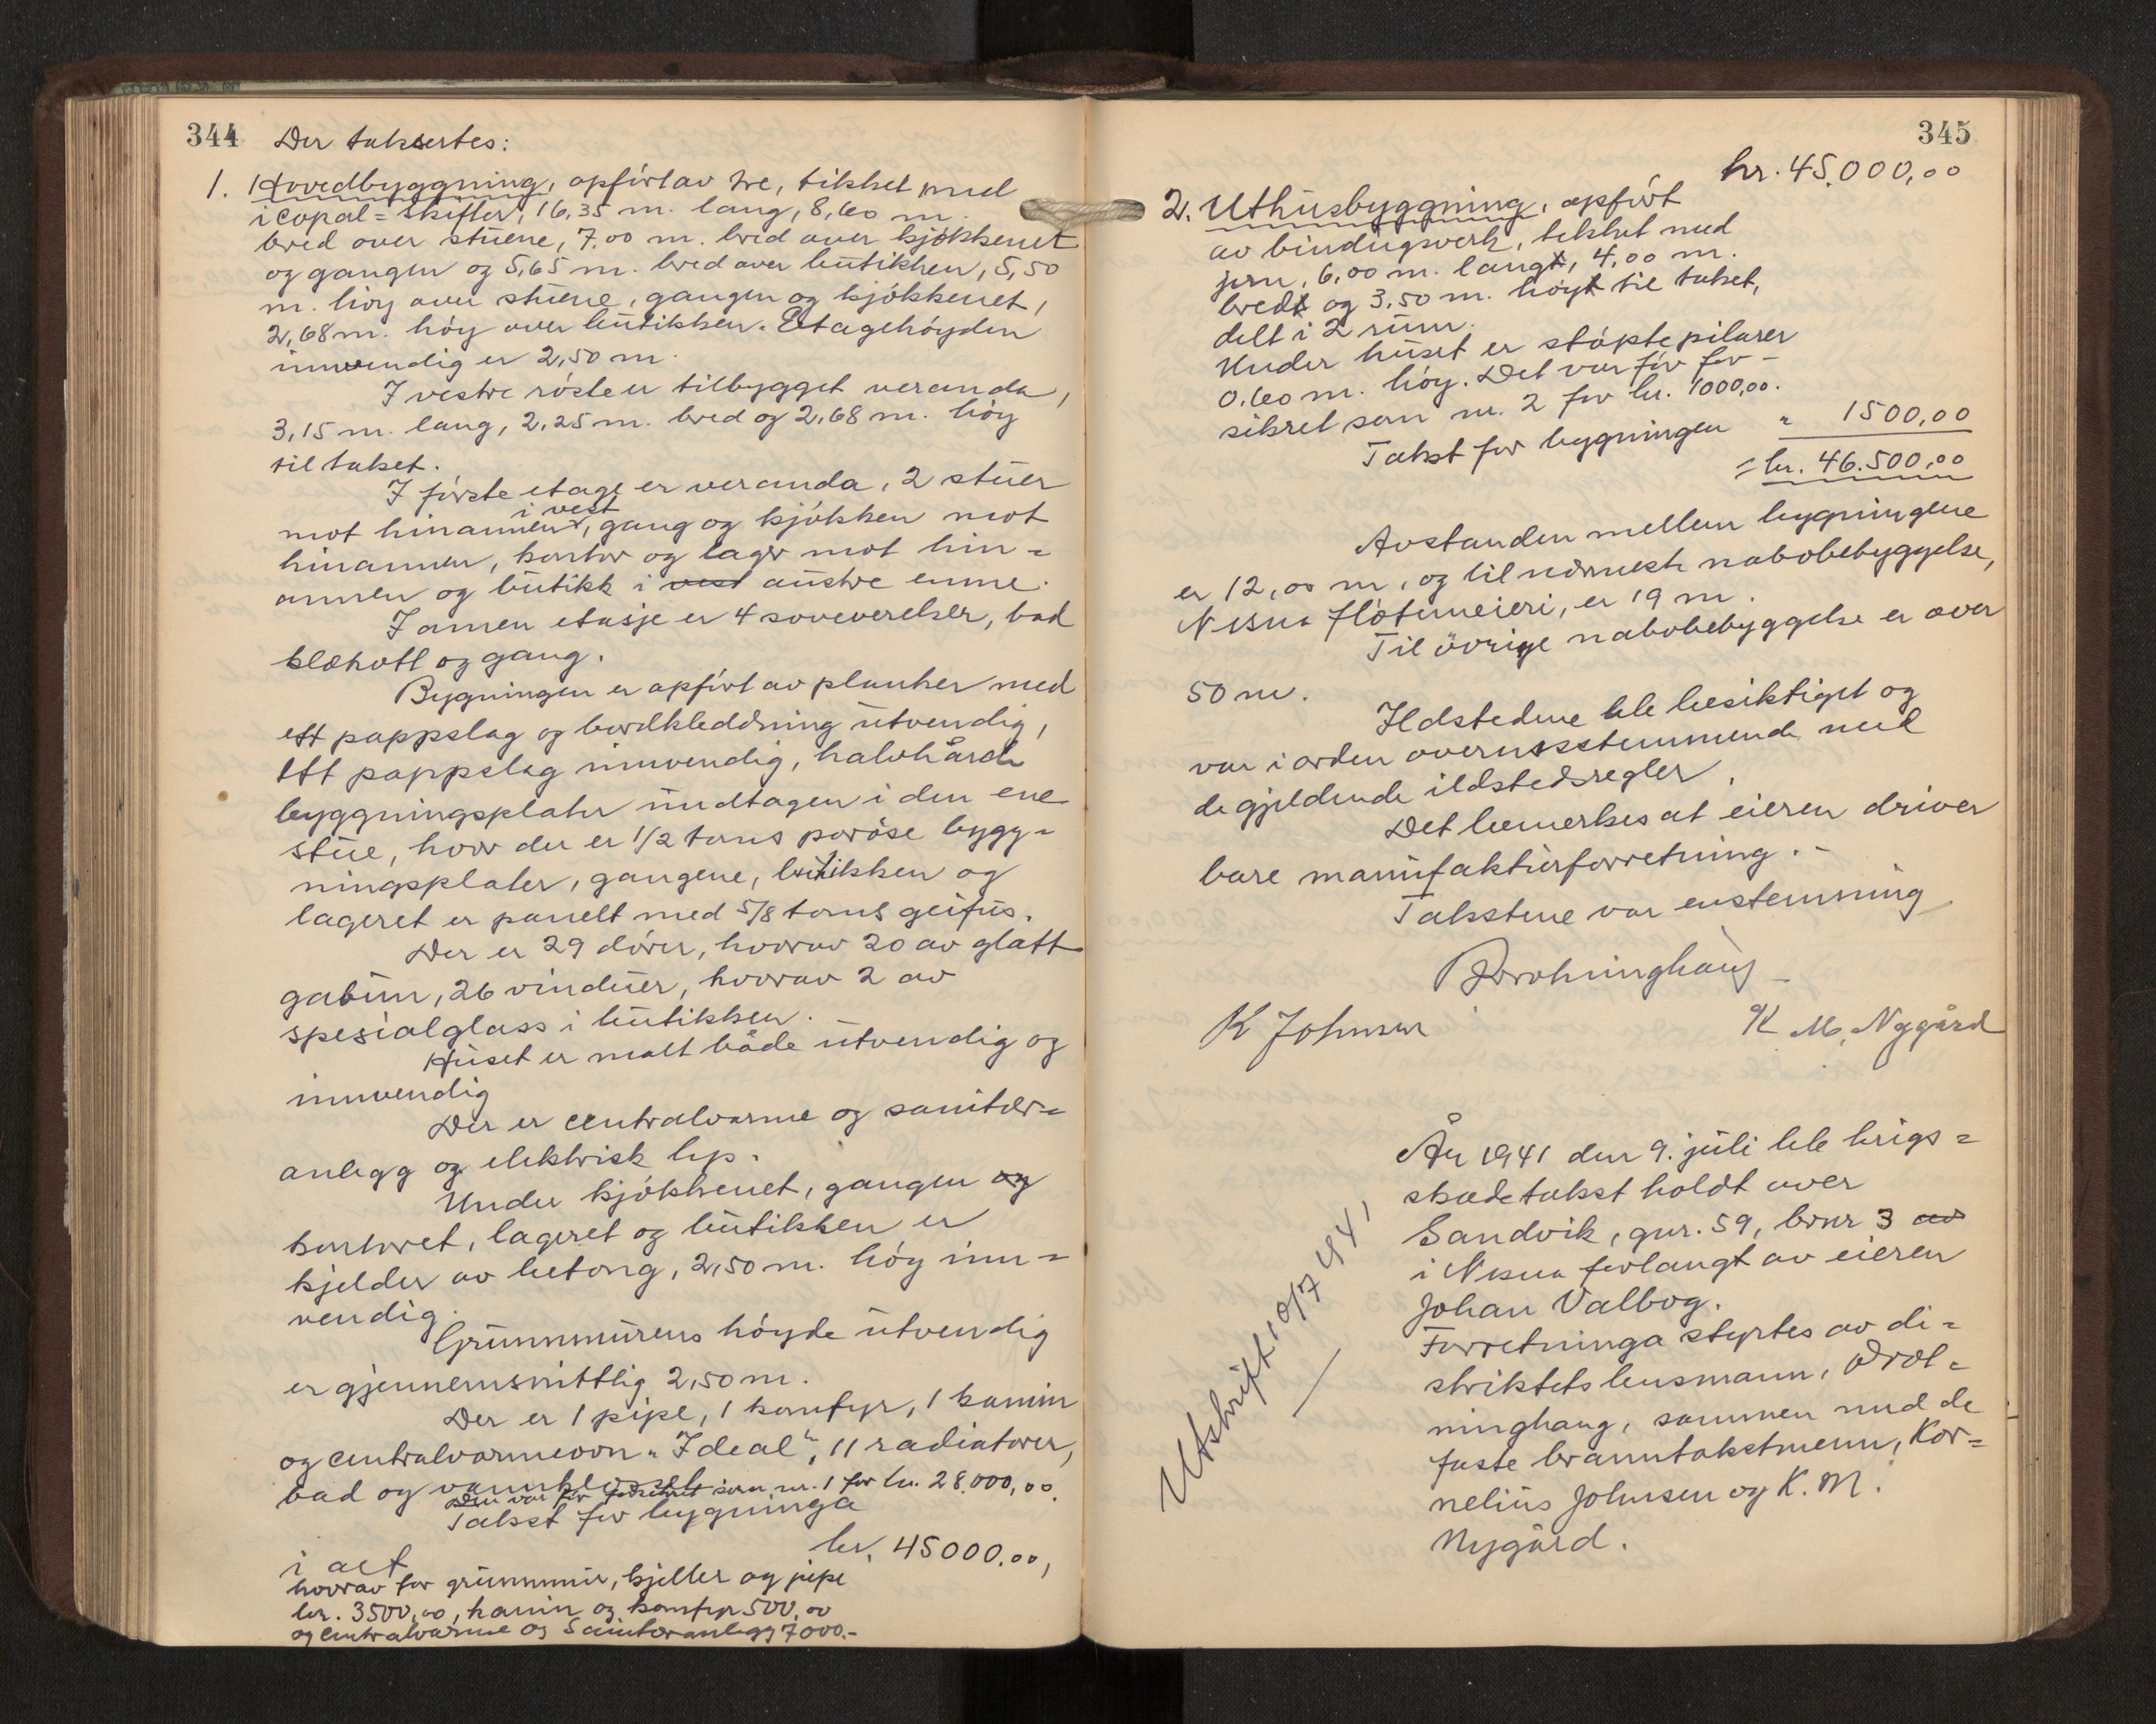 344
Der taksertes:
1. Hovedbyggning, opført av tre, tekket med
i copal=skifter, 16,35 m. lang, 8,60 m.
bred over stuene, 7,00 m. bred over kjøkkenet
og gangen og 5,65 m. bred over butikken, 5,50
m. høy over stuene, gangen og kjøkkenet,
2,68 m. høy over butikken. Etagehøyden
innvendig er 2,50 m.
I vestre røste er tilbygget veranda,
3,15 m. lang, 2,25 m. bred og 2,68 m. høy
til taket.
I første etage er veranda, 2 stuer
i vest
mot hinannen, gang og kjøkken mot
hinannen, kontor og lager mot hin=
annen og butikk i vest austre enne.
I annen etasje er 4 soveverelser, bad
klækott og gang.
Bygningen er opført av planker med
ett pappslag og bordkleddning utvendig,
ett pappslag innvendig, halvhårde
byggningsplater undtagen i den ene
stue, hvor der er 1/2 toms porøse bygg=
ningsplater, gangene, butikken og
lageret er panelt med 5/8 toms geifus.
Der er 29 dører, hvorav 20 av glatt
gabun, 26 vinduer, hvorav 2 av
spesialglass i butikken.
Huset er malt både utvendig og
innvendig
Der er centralvarme og sanitær=
anlegg og elektrisk lys.
Under kjøkkenet, gangen og
kontoret, lageret og butikken er
kjelder av betong, 2,50 m. høy inn=
vendig.
Grunnmurens høyde utvendig
er gjennemsnittlig 2,50 m.
Der er 1 pipe, 1 komfyr, 1 kamin
og centralvarmeovn "Ideal", 11 radiatorer,
bad og vannklosset
Den var før forsikret som nr. 1 for kr. 28.000,00.
Takst for bygninga
i alt kr. 45000.00,
hvorav for grunnmur, kjeller og pipe
kr. 3500,00, kamin og komfyr 500,00
og centralvarme og Sanitæranlegg 7000.-
345
kr. 45.000,00
2. Uthusbyggning, opført
av bindingsverk, tekket med
jern, 6,00 m. langt, 4,00 m.
bredt og 3,50 m. høyt til taket,
delt i 2 rum.
Under huset er støpte pilarer
0.60 m. høy. Det var før for-
sikret som nr. 2 for kr. 1000,00.
Takst for bygningen " 1500,00
= kr. 46.500,00
Avstanden mellem bygningene
er 12,00 m, og til nærmeste nabobebyggelse,
Nesna fløtemeieri, er 19 m.
Til øvrige nabobebyggelse er over
50 m.
Ildstedene ble besiktiget og
var i orden overensstemmende med
de gjeldende ildstedsregler.
Det bemerkes at eieren driver
bare manufakturforretning.-
Takstene var enstemmig
Dronninghaug
K Johnsen
K M, Nygård
År 1941 den 9. juli ble krigs=
skadetakst holdt over
Sandvik, gnr. 59, brnr 3 av
i Nesna forlangt av eieren
Johan Valbog.
Forretninga styrtes av di=
striktets lensmann, Dron=
ninghaug, sammen med de
faste branntakstmenn, Kor=
nelius Johnsen og K. M.
Nygård.
Utskrift 10/7 441